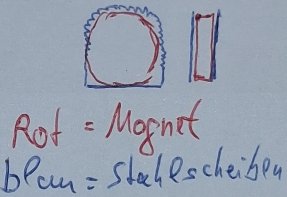 Rot = Magnet
blau = Stahlscheiben